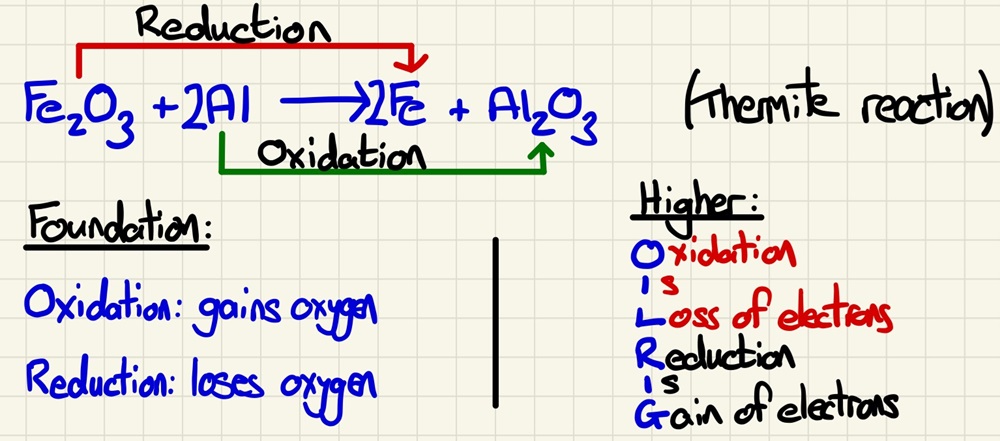 Reduction
Fe₂O₃ + 2Al ⟶ 2Fe + Al₂O₃ (Thermite reaction)
Oxidation
Foundation:
Oxidation: gains oxygen
Reduction: loses oxygen
Higher:
Oxidation
Is
Loss of electrons
Reduction
Is
Gain of electrons